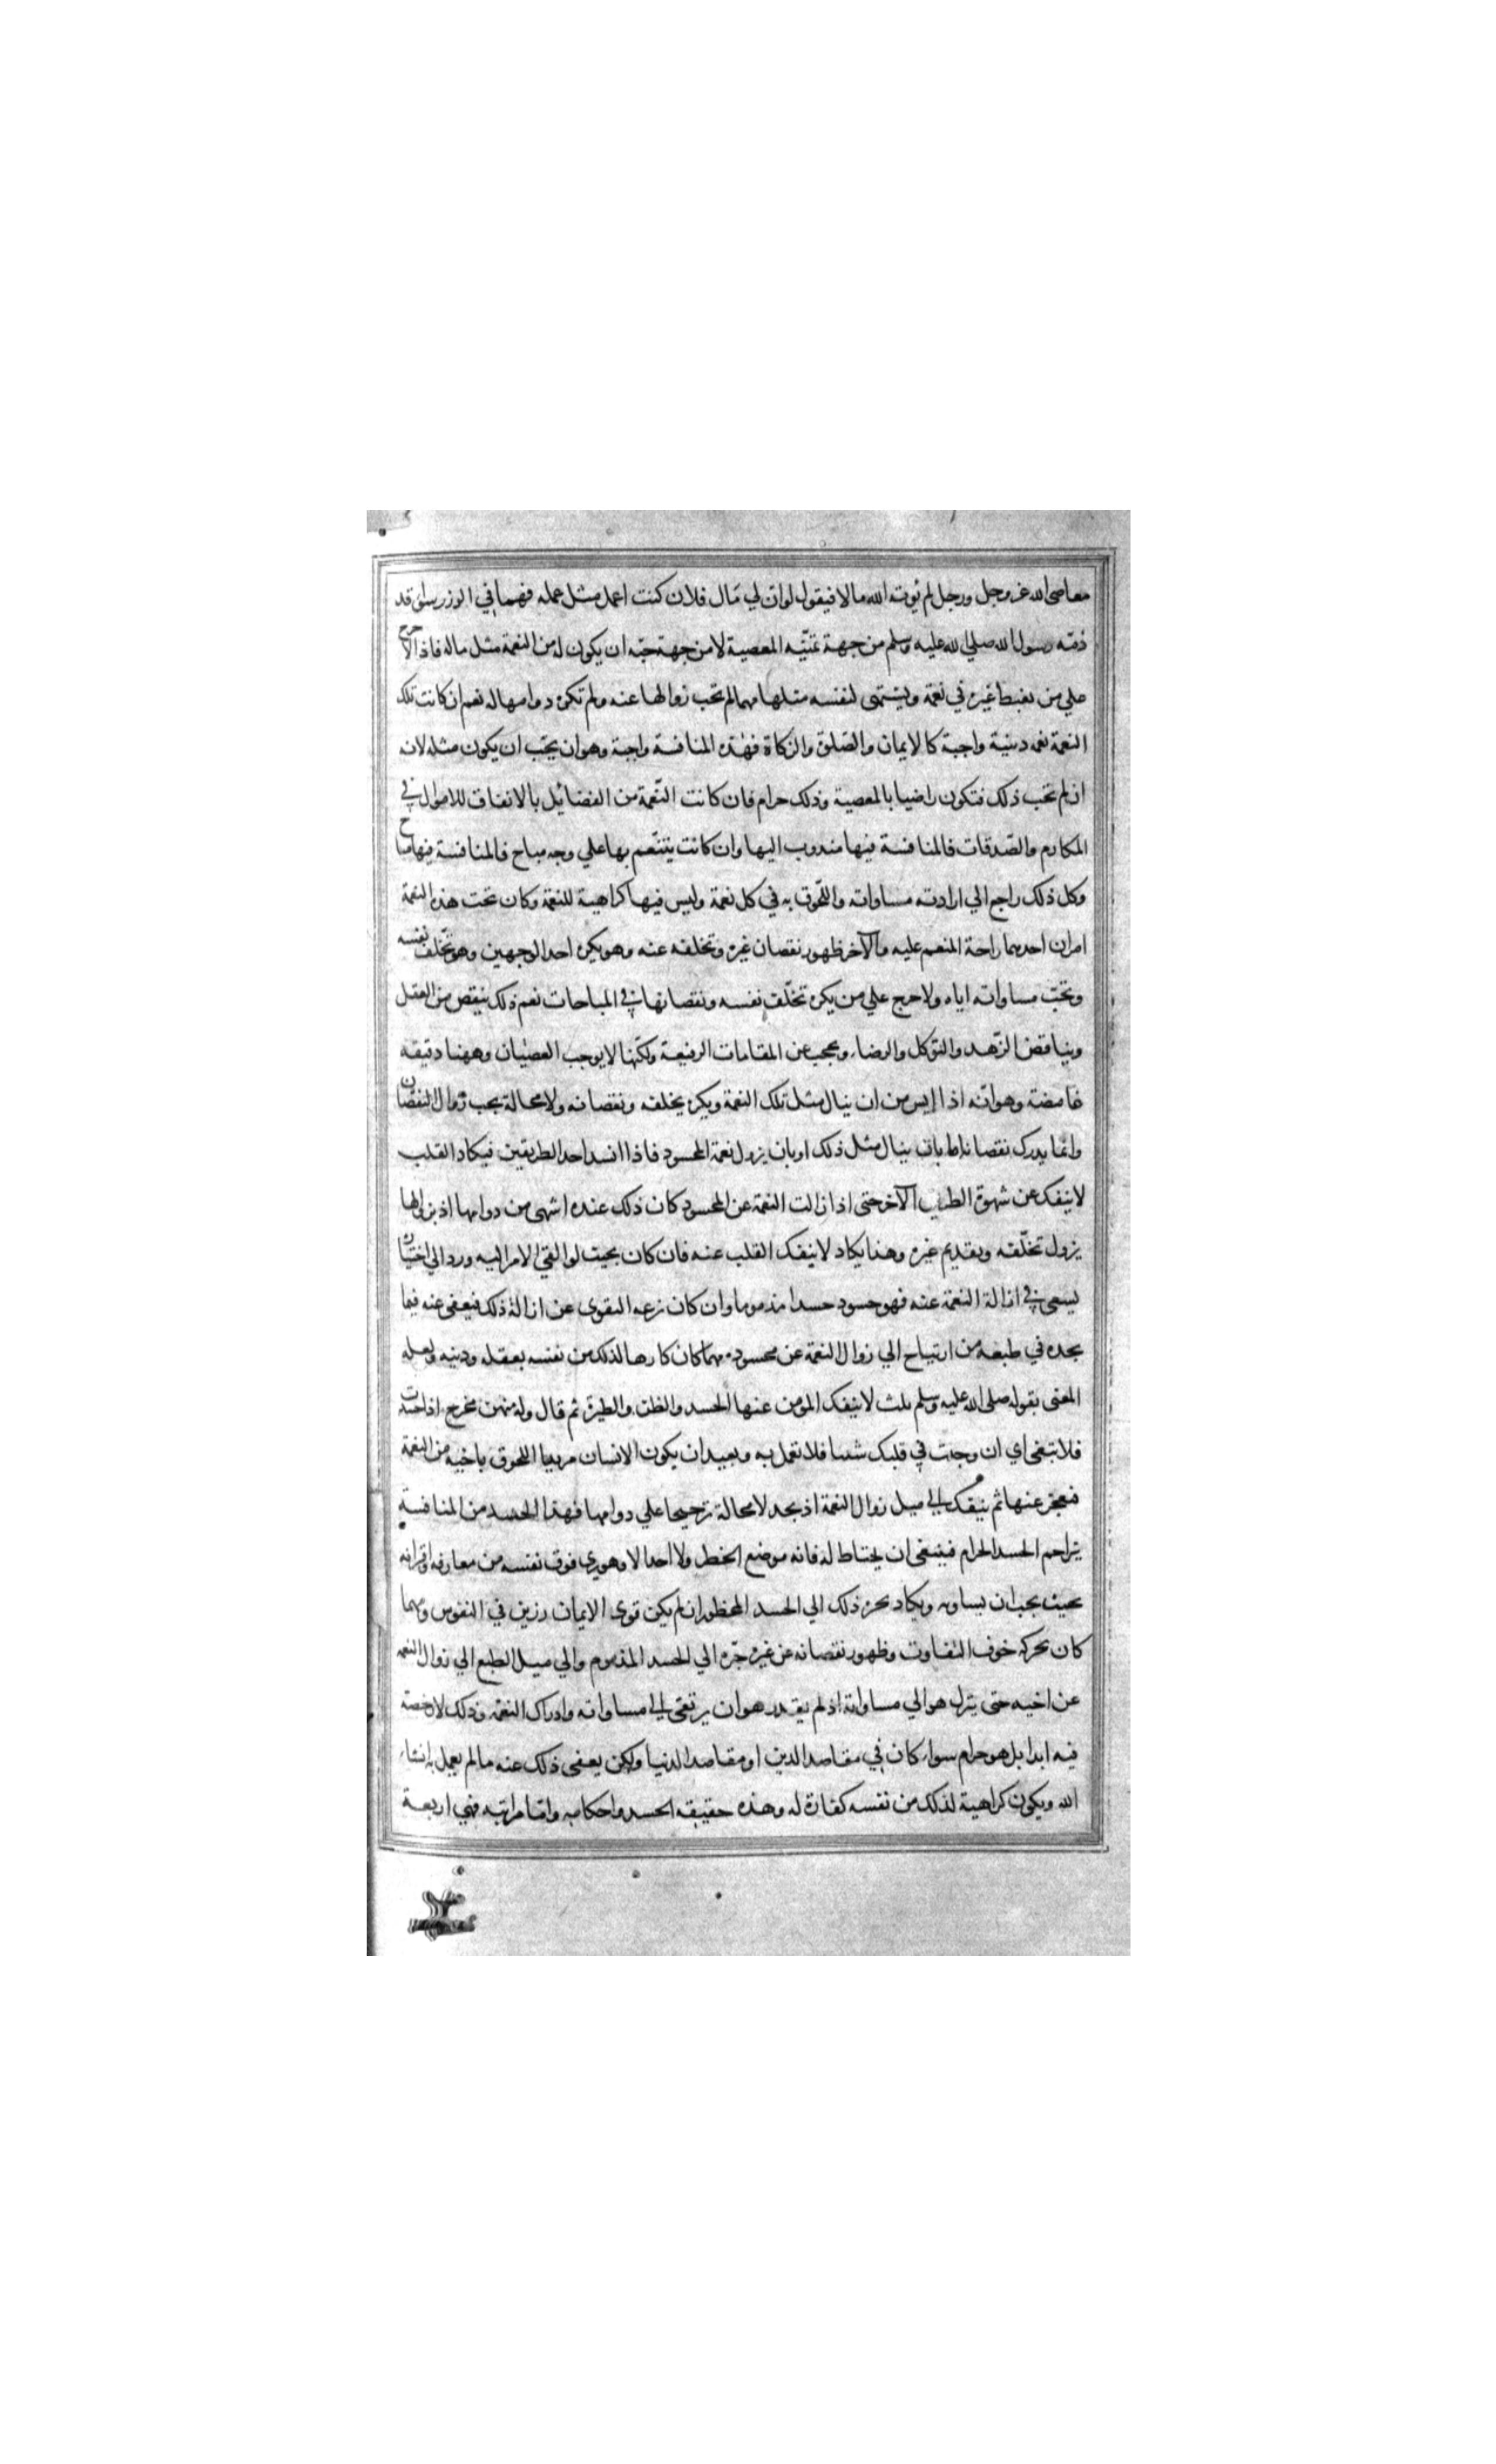 معاصي الله عز وجل ورجل لم يؤته الله مالا فيقول لو ان لي مال فلان كنت اعمل مثل عمله فهما في الوزر سواء قد
ذمّه رسول الله صلي الله عليه وسلم من جهة تمنّيه المعصية لا من جهة حبّه ان يكون له من النعمة مثل ماله فاذا لا حرج
علي من يغبط غيره في نعمة ويشتهي لنفسه مثلها مهما لم تحب زوالها عنه ولم تكره دوامها له نعم ان كانت تلك
النعمة نعمه دينية واجبة كالايمان والصّلوة والزكاة فهذه المنافسة واجبة وهو ان يحّب ان يكون مثله لانه
اذ لم تحب ذلك فتكون راضيا بالمعصية وذلك حرام فان كانت النّعمة من الفضائيل بالانفاق للاموال في
المكارم والصّدقات فالمنافسة فيها مندوب اليها وان كانت يتنّعم بها علي وجه مباح فالمنافسة فيها مباح
وكل ذلك راجع الي ارادته مساواته واللّحوق به في كل نعمة وليس فيها كراهية للنعمة وكان تحت هذه النعمة
امران احدهما راحة المنعم عليه والآخر ظهور نقصان غيره وتخلفه عنه وهو يكره احد الوجهين وهو تخّلف نفسه
وتحّب مساواته اياه ولا حرج علي من يكره تخلّف نفسه ونقصانها في المباحات نعم ذلك ينقص من العقل
ويناقض الزّهد والتوكل والرضاء ويحجب عن المقامات الرفيعة ولكّنها لا يوجب العصيان وههنا دقيقه
غامضة وهو انّه اذا ايس من ان ينال مثل تلك النعمة ويكره يخلفه ونقصانه ولا محالة يحب زوال النقصان
وانّما يدرك نقصانه اما بان ينال مثل ذلك او بان يزول نعمة المحسود فاذا انسد احد الطريقين فيكاد القلب
لا ينفك عن شهوة الطريق الآخر حتى اذا زالت النعمة عن المحسود كان ذلك عنده اشهى من دوامها اذ بزوالها
يزول تخلّفه وبقديم غيره وهذا يكاد لا ينفك القلب عنه فان كان بحيث لو القي الامر اليه ورد الي اختياره
يسعى في ازالة النعمة عنه فهو حسود حسدا مذموما وان كان نزعه التقوى عن ازالة ذلك فيعفى عنه فيما
يجده في طبعه من ارتياح الي زوال النعمة عن محسوده مهما كان كارها لذلك من نفسه بعقله ودينه ولعله
المعنى بقوله صلى الله عليه وسلم ثلث لا ينفك المؤمن عنها الحسد والظن والطيرة ثم قال وله منهن مخرج اذا حسدت
فلا تبغى اي ان وجدت في قلبك شيئا فلا تعمل به وبعيد ان يكون الانسان مريدا اللحوق باخيه من النعمة
فيعجز عنها ثم ينفك الي ميل زوال النعمة اذ يجد لا محالة ترجيحا علي دوامها فهذا الحسد من المنافسة
يتراحم الحسد الحرام فينبغى ان يحتاط له فانه موضع الخطر ولا احدا لا وهو يري فوق نفسه من معارفه واقرانه
بحيث يحب ان يساويه ويكاد يجره ذلك الي الحسد المحظور ان لم يكن قوى الايمان رزين في النفوس ومهما
كان يحركه خوف التفاوت وظهور نقصانه عن غيره جرّه الي الحسد المذموم والي ميل الطبع الي زوال النعمه
عن اخيه حتى ينزل هو الي مساواته اذ لم يقدر هو ان يرتقي الي مساواته وادراك النعمة وذلك لا رخصة
فيه ابدا بل هو حرام سواء كان في مقاصد الدين او مقاصد الدنيا ولكن يعفى ذلك عنه ما لم يعمل به انشاء
الله ويكون كراهية لذلك من نفسه كفارة له وهذه حقيقه الحسد واحكامه واما مراتبه فهي اربعة